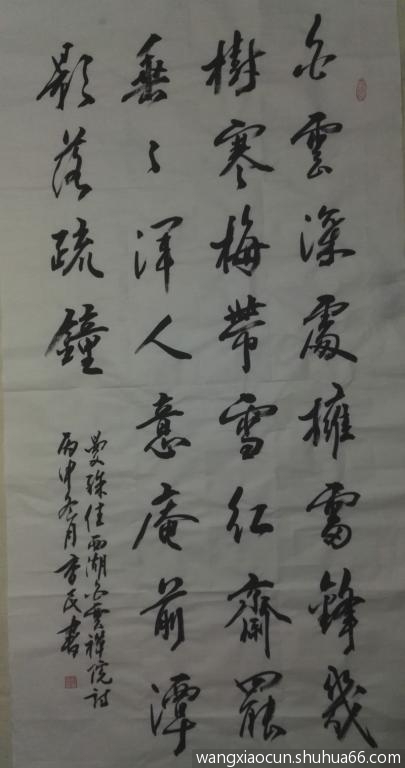 白雲深處擁雷鋒幾
樹寒梅帶雪紅齋罷
垂々渾人意庵前潭
影落疏鐘
曼殊住西湖白雲禪院詩
丙申冬月民書
wangxiaocun.shuhua66.com